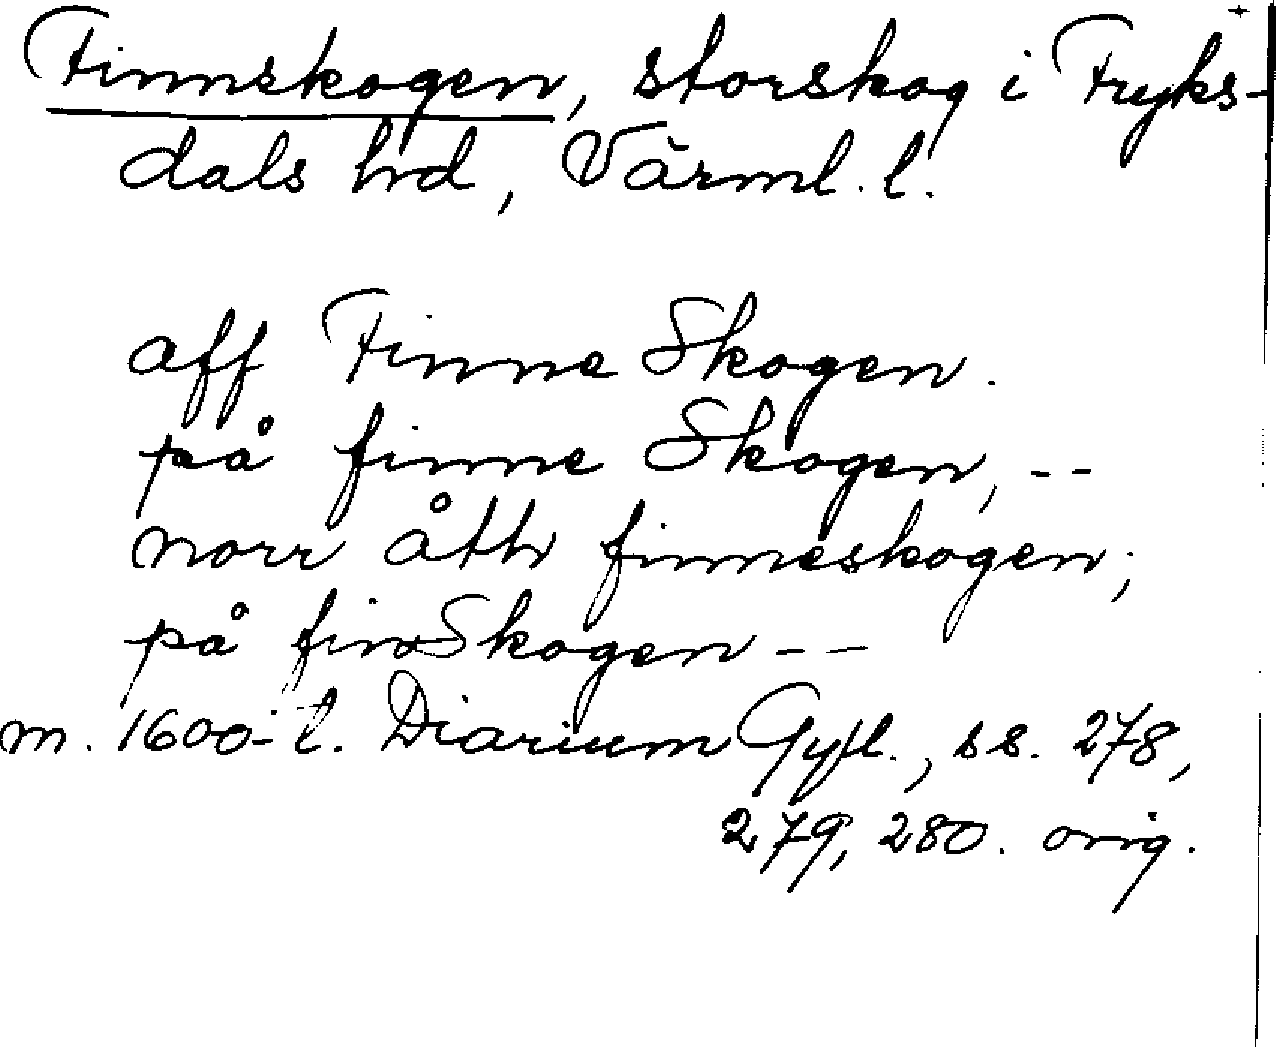 Finnskogen, storskog i Fryks-
dals hd, Värml. l.
aff Finne Skogen.
på finne Skogen, --
norr åth finneskogen;
på finSkogen --
m. 1600-t. Diarium Gyll., ss. 278,
279, 280. orig.